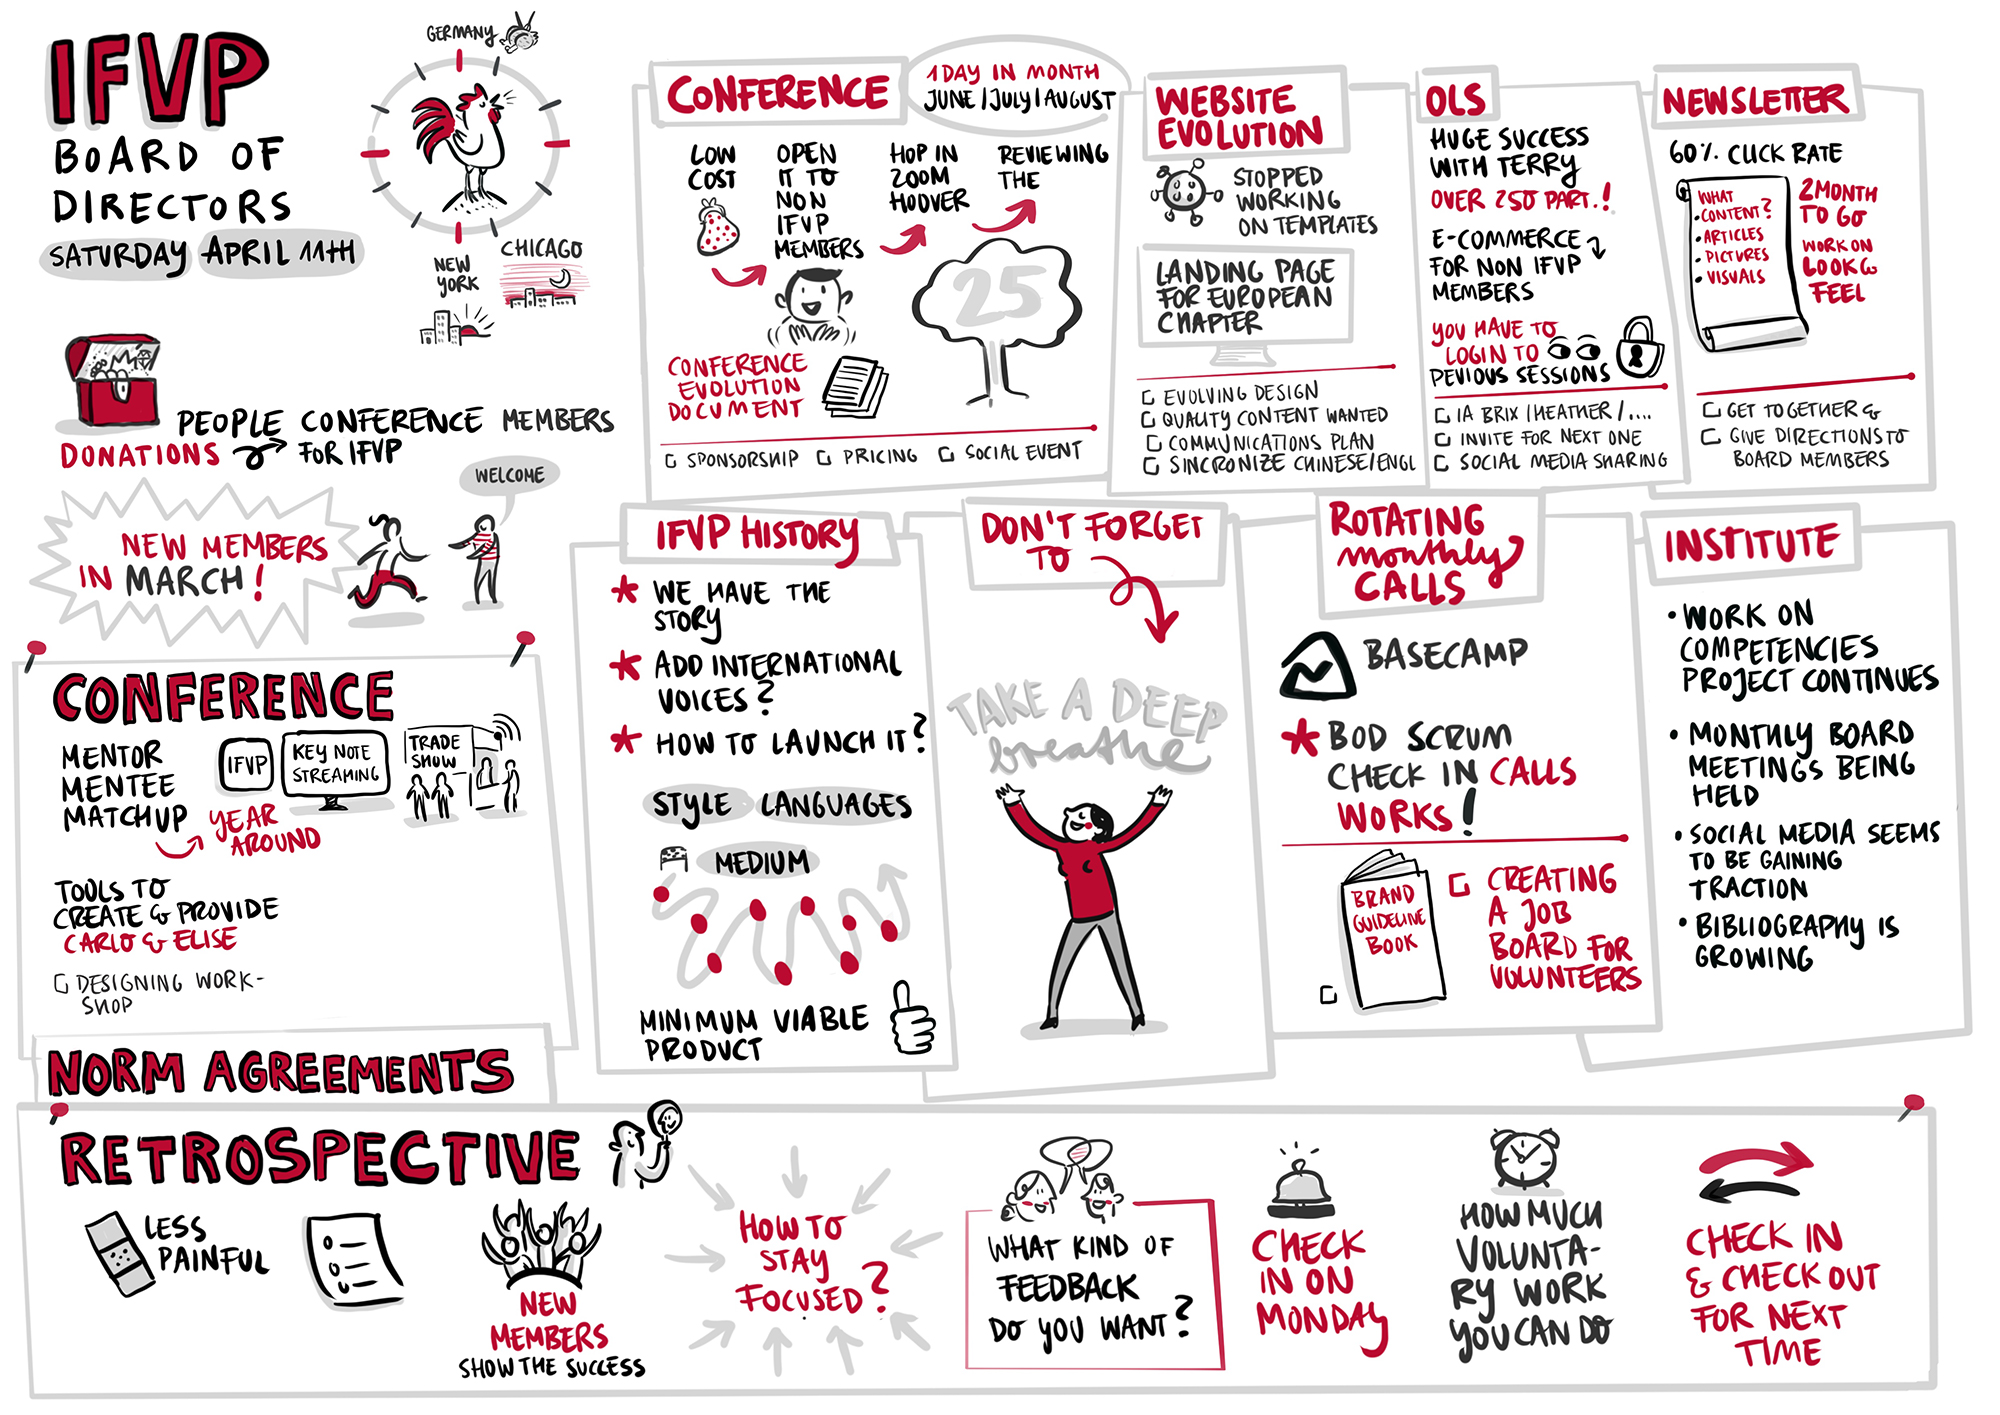 IFVP
BOARD OF
DIRECTORS
SATURDAY APRIL 11TH
GERMANY
NEW
YORK
CHICAGO
PEOPLE CONFERENCE MEMBERS
DONATIONS FOR IFVP
WELCOME
NEW MEMBERS
IN MARCH!
CONFERENCE
MENTOR
MENTEE
MATCHUP
YEAR
AROUND
IFVP
KEY NOTE
STREAMING
TRADE
SHOW
TOOLS TO
CREATE & PROVIDE
CARLO & ELISE
DESIGNING WORK-
SHOP
CONFERENCE
1 DAY IN MONTH
JUNE/JULY/AUGUST
LOW
COST
OPEN
IT TO
NON
IFVP
MEMBERS
HOP IN
ZOOM
HOOVER
REVIEWING
THE
25
CONFERENCE
EVOLUTION
DOCUMENT
SPONSORSHIP
PRICING
SOCIAL EVENT
WEBSITE
EVOLUTION
STOPPED
WORKING
ON TEMPLATES
LANDING PAGE
FOR EUROPEAN
CHAPTER
EVOLVING DESIGN
QUALITY CONTENT WANTED
COMMUNICATIONS PLAN
SINCRONIZE CHINESE/ENGL
OLS
HUGE SUCCESS
WITH TERRY
OVER 250 PART.!
E-COMMERCE
FOR NON IFVP
MEMBERS
YOU HAVE TO
LOGIN TO
PEVIOUS SESSIONS
IA BRIX/HEATHER/....
INVITE FOR NEXT ONE
SOCIAL MEDIA SHARING
NEWSLETTER
60% CLICK RATE
WHAT
CONTENT?
• ARTICLES
• PICTURES
• VISUALS
2 MONTH
TO GO
WORK ON
LOOK &
FEEL
GET TOGETHER &
GIVE DIRECTIONS TO
BOARD MEMBERS
IFVP HISTORY
* WE HAVE THE
STORY
* ADD INTERNATIONAL
VOICES?
* HOW TO LAUNCH IT?
STYLE LANGUAGES
MEDIUM
MINIMUM VIABLE
PRODUCT
DON'T FORGET
TO
TAKE A DEEP
breathe
ROTATING
monthly
CALLS
BASECAMP
* BOD SCRUM
CHECK IN CALLS
WORKS!
BRAND
GUIDELINE
BOOK
CREATING
A JOB
BOARD FOR
VOLUNTEERS
INSTITUTE
• WORK ON
COMPETENCIES
PROJECT CONTINUES
• MONTHLY BOARD
MEETINGS BEING
HELD
• SOCIAL MEDIA SEEMS
TO BE GAINING
TRACTION
• BIBLIOGRAPHY IS
GROWING
NORM AGREEMENTS
RETROSPECTIVE
LESS
PAINFUL
NEW
MEMBERS
SHOW THE SUCCESS
HOW TO
STAY
FOCUSED?
WHAT KIND OF
FEEDBACK
DO YOU WANT?
CHECK
IN ON
MONDAY
HOW MUCH
VOLUNTA-
RY WORK
YOU CAN DO
CHECK IN
& CHECK OUT
FOR NEXT
TIME